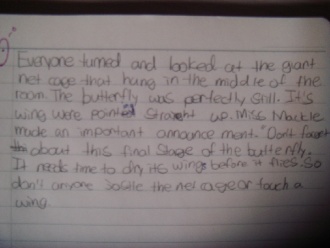 Everyone turned and looked at the giant
net cage that hung in the middle of the
room. The butterfly was perfectly still. It's
wing were pointed straight up. Miss Mackle
made an important announce ment. "Don't forget
about this final stage of the butterfly.
It needs time to dry its wings before it flies. So
don't anyone jostle the net cage or touch a
wing.